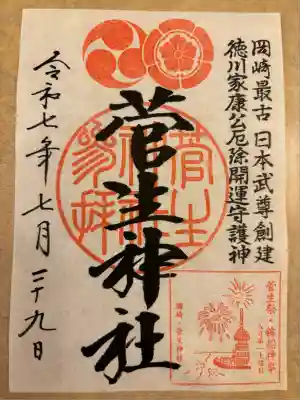 岡崎最古 日本武尊創建
徳川家康公厄除開運守護神
菅生神社
令和七年七月二十九日
菅生祭・鉾船神事
岡崎・菅生神社